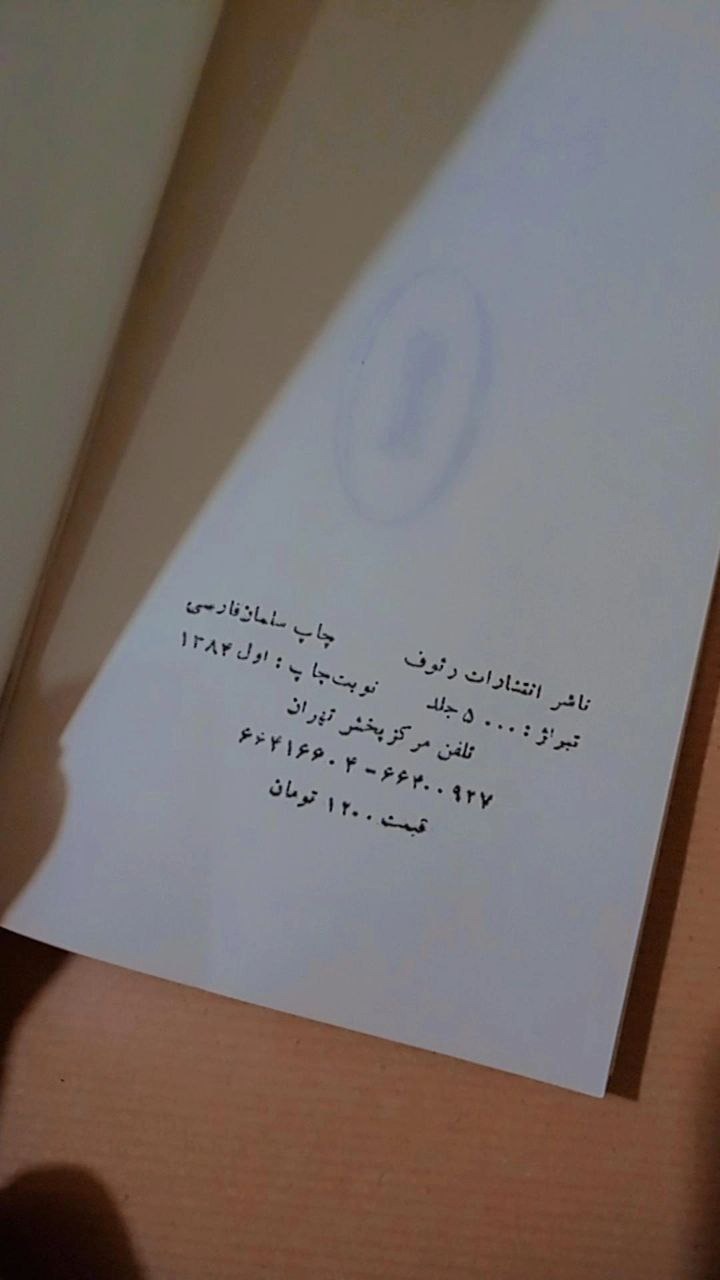 ناشر انتشارات رئوف چاپ سلمان‌فارسی
تیراژ : ۵۰۰۰ جلد نوبت‌چاپ : اول ۱۳۸۴
تلفن مرکز پخش تهران
۶۶۴۱۶۶۰۴ - ۶۶۴۰۰۹۲۷
قیمت ۱۲۰۰ تومان